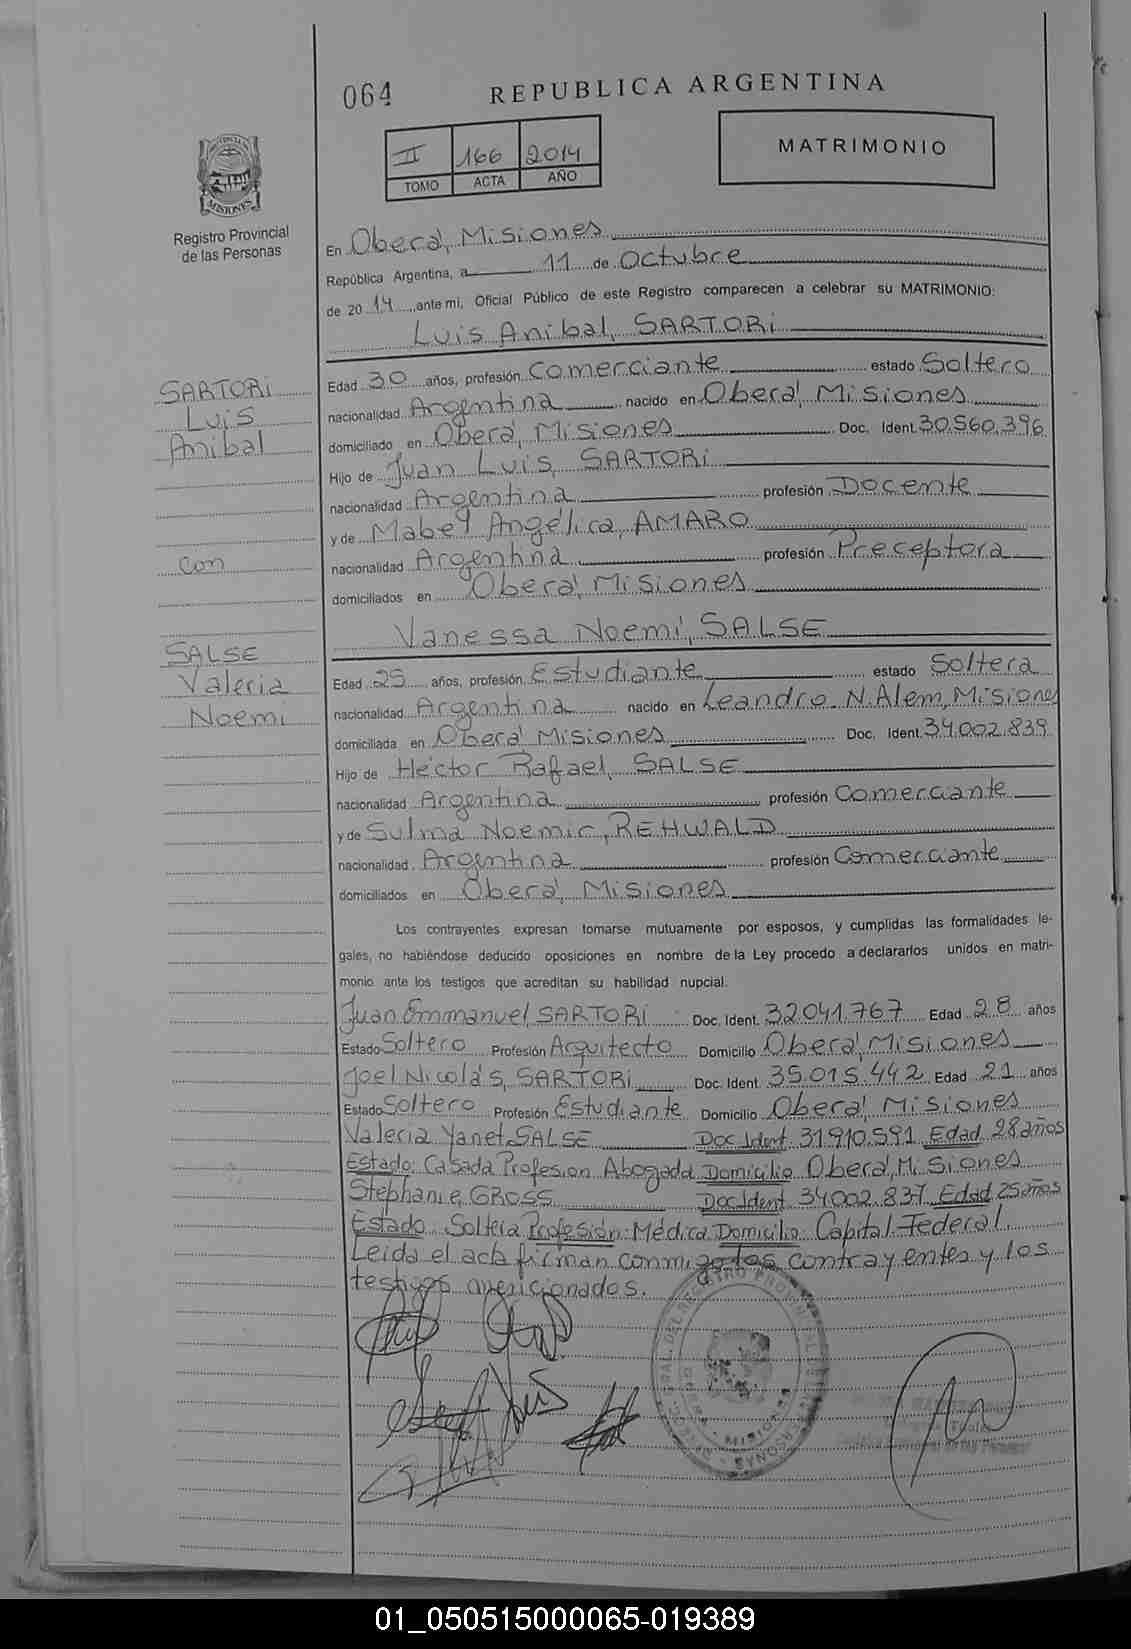 064
REPUBLICA ARGENTINA
II 166 2014
TOMO ACTA AÑO
MATRIMONIO
MISIONES
Registro Provincial
de las Personas
En Oberá, Misiones
República Argentina, a 11 de Octubre
de 2014, ante mi, Oficial Público de este Registro comparecen a celebrar su MATRIMONIO:
Luis Anibal, SARTORi
SARTORi
Luis
Anibal
con
SALSE
Valeria
Noemi
Edad 30 años, profesión Comerciante estado Soltero
nacionalidad Argentina nacido en Oberá, Misiones
domiciliado en Oberá, Misiones Doc. Ident. 30.560.396
Hijo de Juan Luis, SARTORi
nacionalidad Argentina profesión Docente
y de Mabel Angélica, AMARO
nacionalidad Argentina profesión Preceptora
domiciliados en Oberá, Misiones
Vanessa Noemi, SALSE
Edad 25 años, profesión Estudiante estado Soltera
nacionalidad Argentina nacido en Leandro N. Alem, Misiones
domiciliada en Oberá Misiones Doc. Ident. 34.002.839
Hijo de Héctor Rafael, SALSE
nacionalidad Argentina profesión Comerciante
y de Sulma Noemir, REHWALD
nacionalidad Argentina profesión Comerciante
domiciliados en Oberá, Misiones
Los contrayentes expresan tomarse mutuamente por esposos, y cumplidas las formalidades le-
gales, no habiéndose deducido oposiciones en nombre de la Ley procedo a declararlos unidos en matri-
monio ante los testigos que acreditan su habilidad nupcial.
Juan Emmanuel, SARTORi Doc. Ident. 32.041.767 Edad 28 años
Estado Soltero Profesión Arquitecto Domicilio Oberá, Misiones
Joel Nicolás, SARTORi Doc. Ident. 35.015.442 Edad 21 años
Estado Soltero Profesión Estudiante Domicilio Oberá, Misiones
Valeria Yanet, SALSE Doc Ident. 31.910.591 Edad 28 años
Estado: Casada Profesion Abogada Domicilio Oberá, Misiones
Stephanie, GROSS Doc Ident. 34.002.837 Edad 25 años
Estado Soltera Profesión Médica Domicilio Capital Federal
Leida el acta firman conmigo los contrayentes y los
testigos mencionados.
01_050515000065-019389